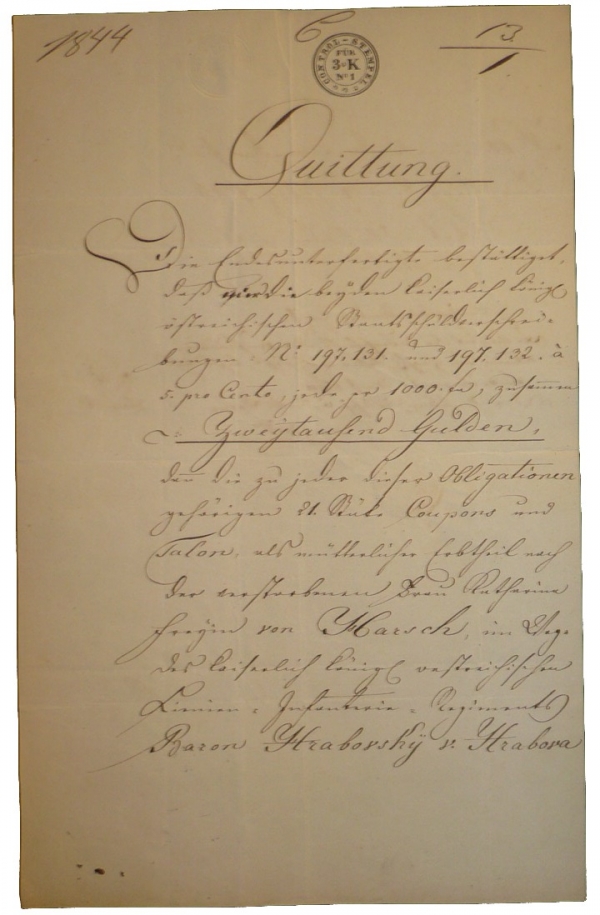 1844
6
13.
1.
CONTROL-STEMPEL
FÜR
3·K
Nº 1
Quittung.
Die Endesunterfertigte bestättiget,
daß die beyden kaiserlich königl
östreichischen Staatsschuldverschrei-
bungen Nº 197.131. und 197.132. à
5. pro Cento, jede pr 1000. fn, zusammen
Zweytausend Gulden,
dann die zu jeder dieser Obligationen
gehörigen 21. Stüke Coupons und
Talon, als mütterlicher Erbtheil nach
der verstorbenen Frau Katharina
Freyin von Harsch, im Wege
des kaiserlich königl oestreichischen
Linien-Infanterie-Regiments
Baron Hrabovskÿ v. Hrabova